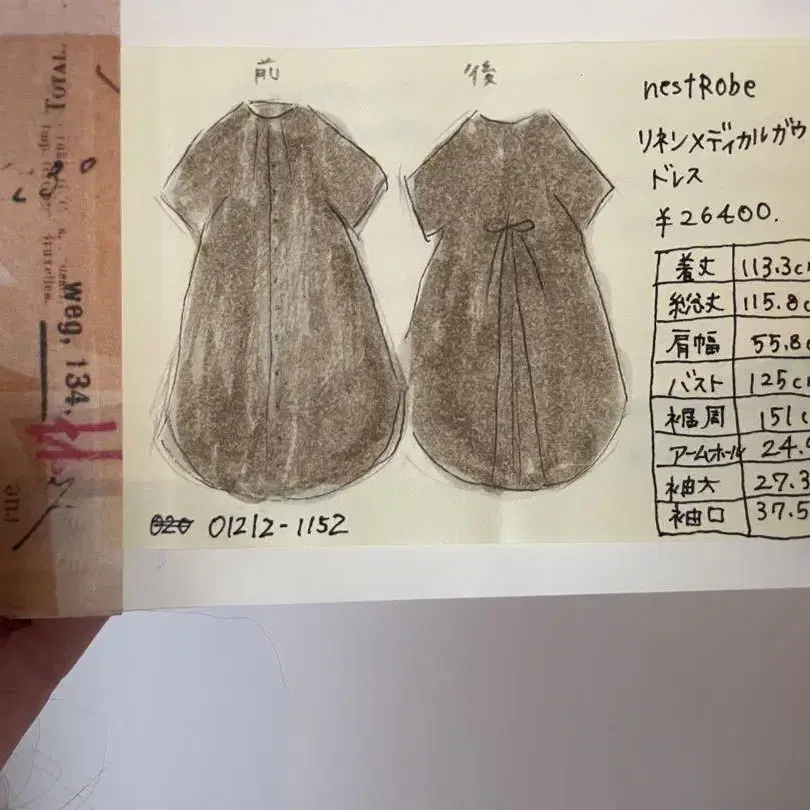 前
後
nestRobe
リネンメディカルガウ
ドレス
¥26400.
着丈 113.3c
総丈 115.8c
肩幅 55.8
バスト 125c
裾周 151c
アームホール 24.
袖大 27.3
袖口 37.5
020 01212-1152
TOTAL.
weg, 134.
Bruxelles.
rue